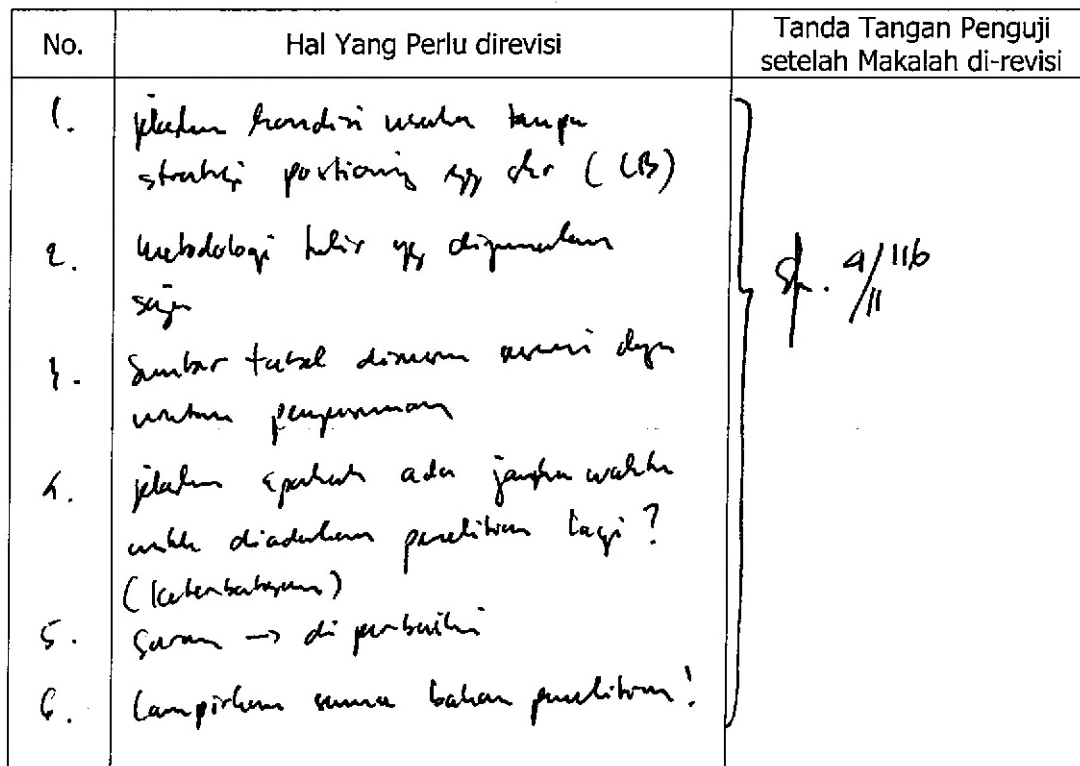 No.
Hal Yang Perlu direvisi
Tanda Tangan Penguji
setelah Makalah di-revisi
1. jelaskan kondisi usaha tanpa
strategi yg (LB)
2. metodologi tulis yg digunakan
saja
3. Sumber tabel disusun sesuai dgn
urutan penyusunan
4. jelaskan apakah ada jangka waktu
untuk diadakan penelitian lagi?
(keterbatasan)
5. Saran → diperbaiki
6. Lampirkan semua bahan penelitian!